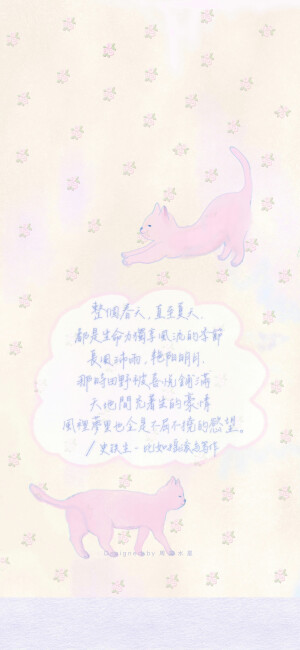 整個春天，直至夏天，
都是生命力獨享風流的季節
長風沛雨，艷陽明月，
那時田野被喜悅鋪滿
天地間充著生的豪情
風裡夢裡也全是不屈不撓的慾望。
/ 史鐵生 -
Designed by